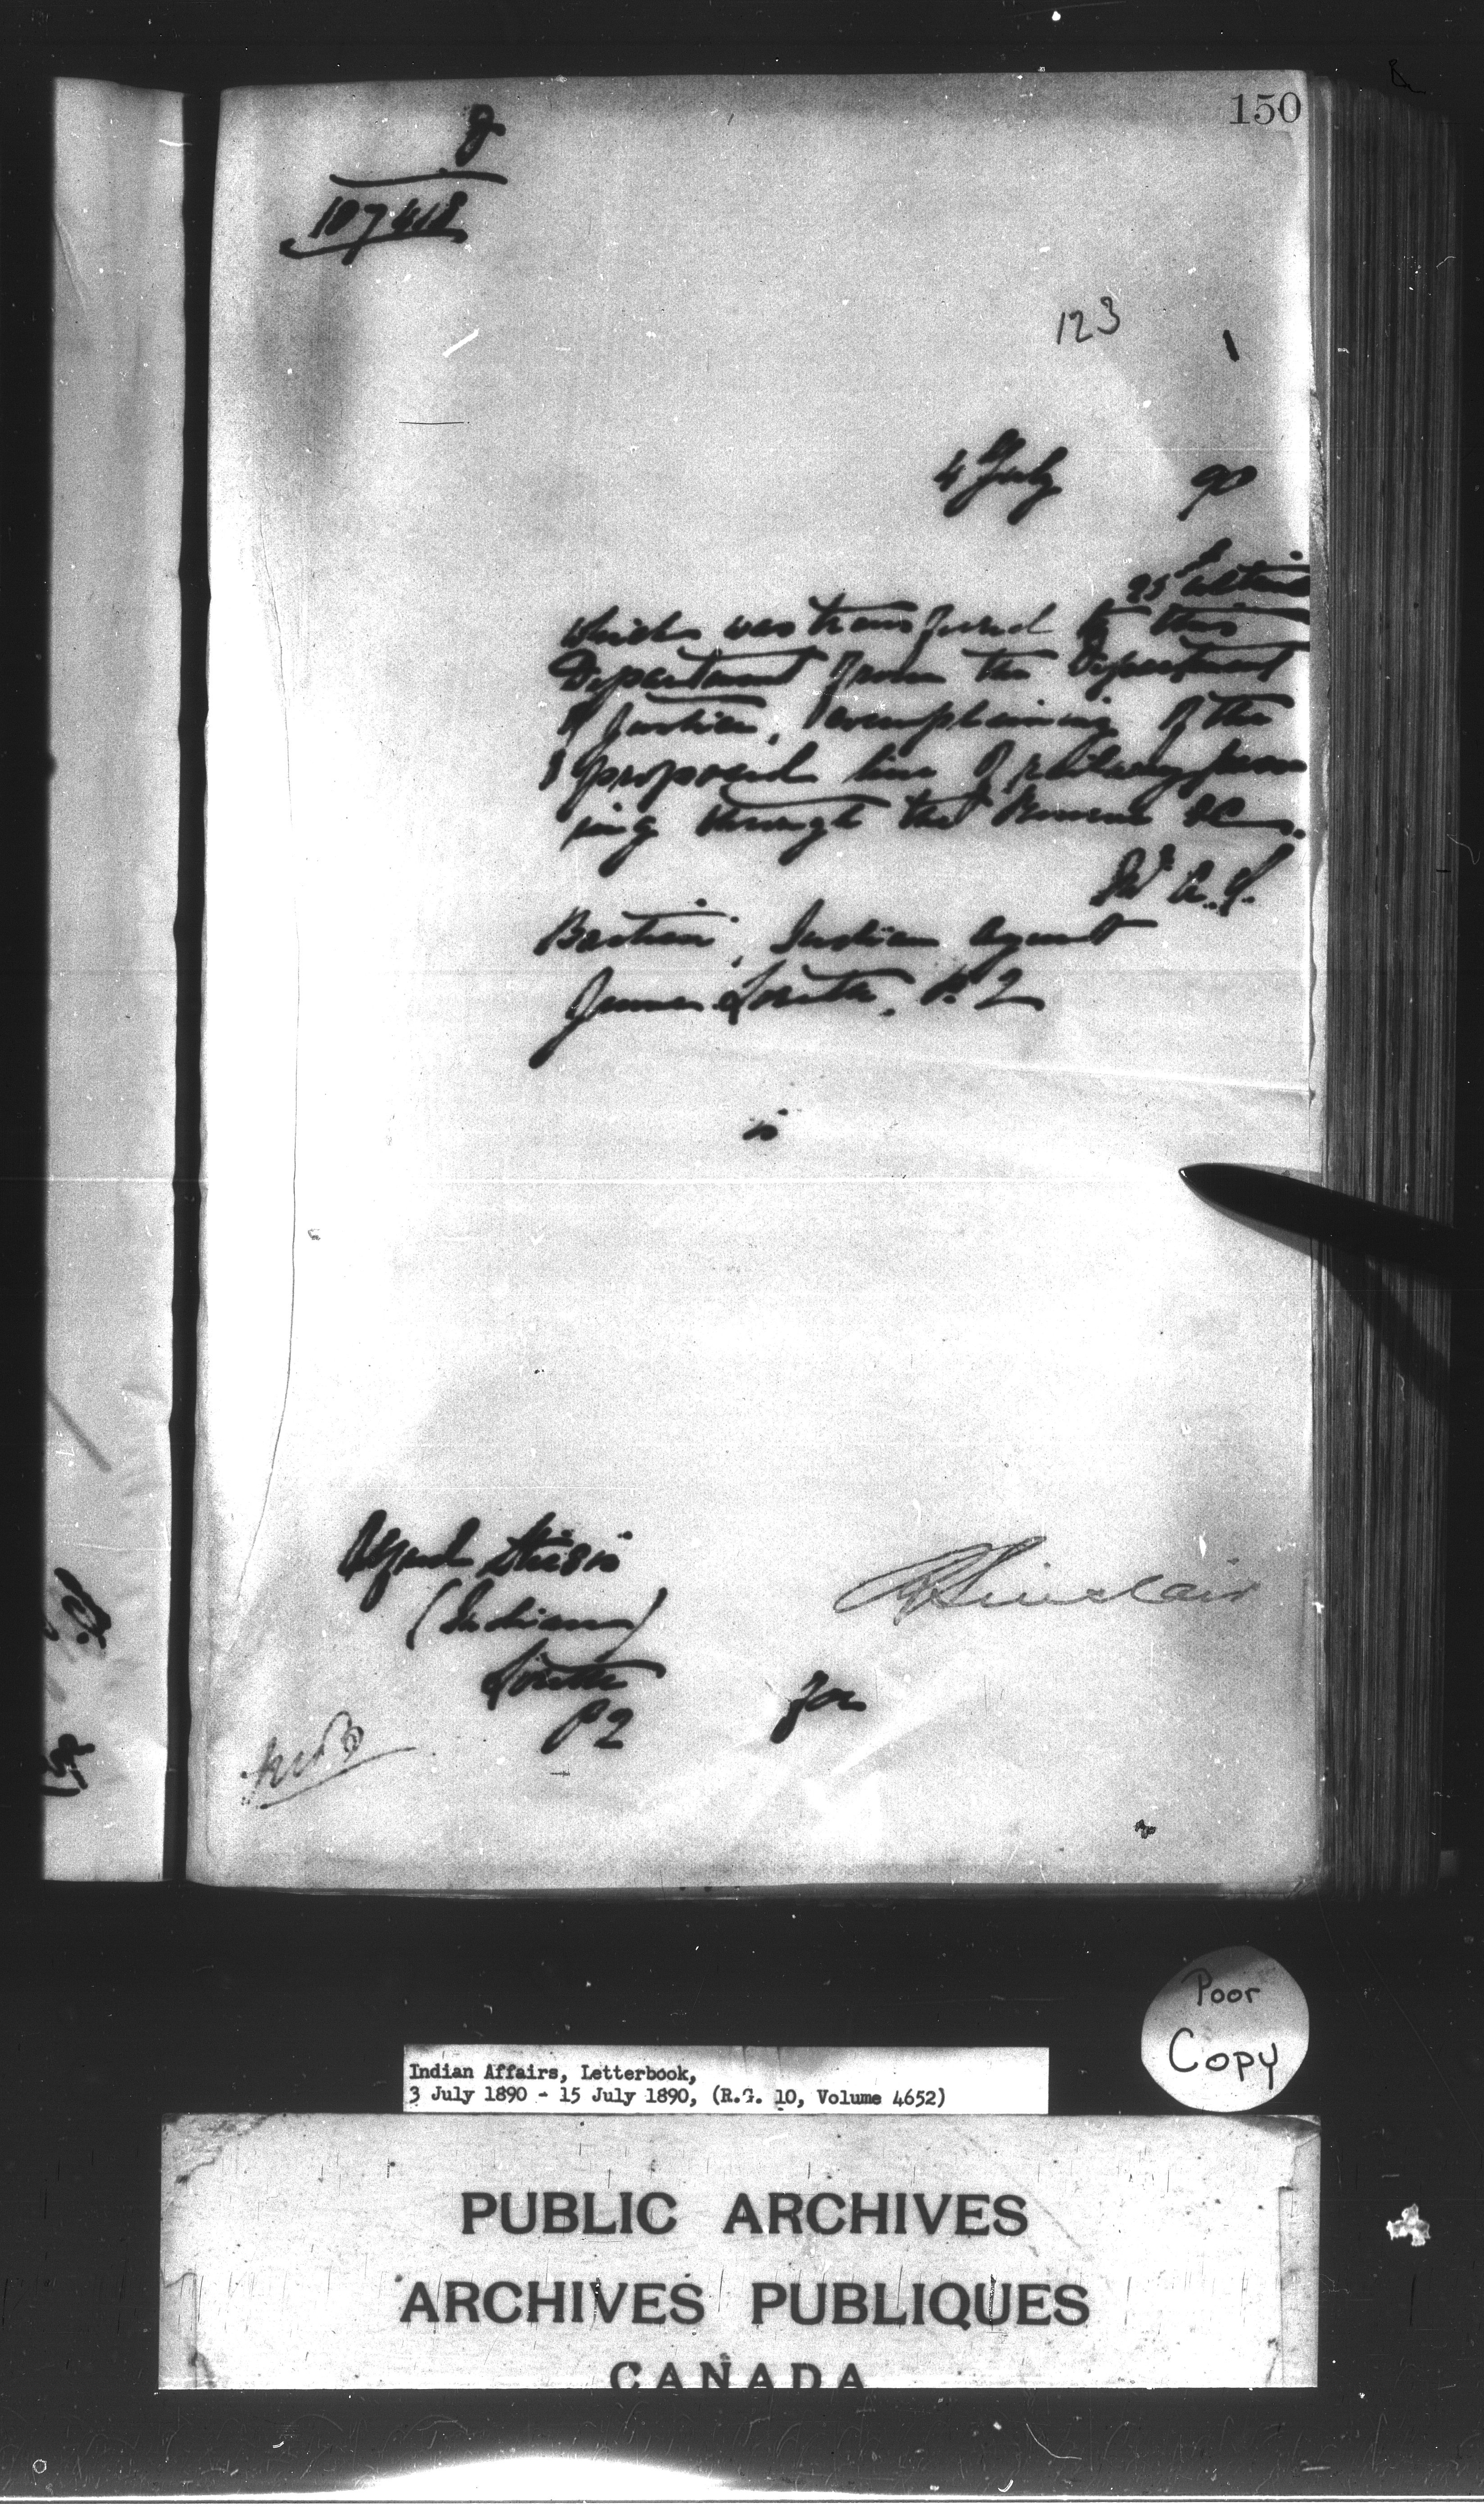 150
107418
123
4 July 90
25th ultimo
which was transferred to this
Department from the Department
of Justice, complaining of the
proposed line of railway pass
ing through the Reserve &c.
Dr A. J.
Bastien, Indian Agent
Jeune Lorette, P.Q
is
Sinclair
(Indian)
Lorette
PQ
for
Poor
Copy
Indian Affairs, Letterbook,
3 July 1890 - 15 July 1890, (R.G. 10, Volume 4652)
PUBLIC ARCHIVES
ARCHIVES PUBLIQUES
CANADA